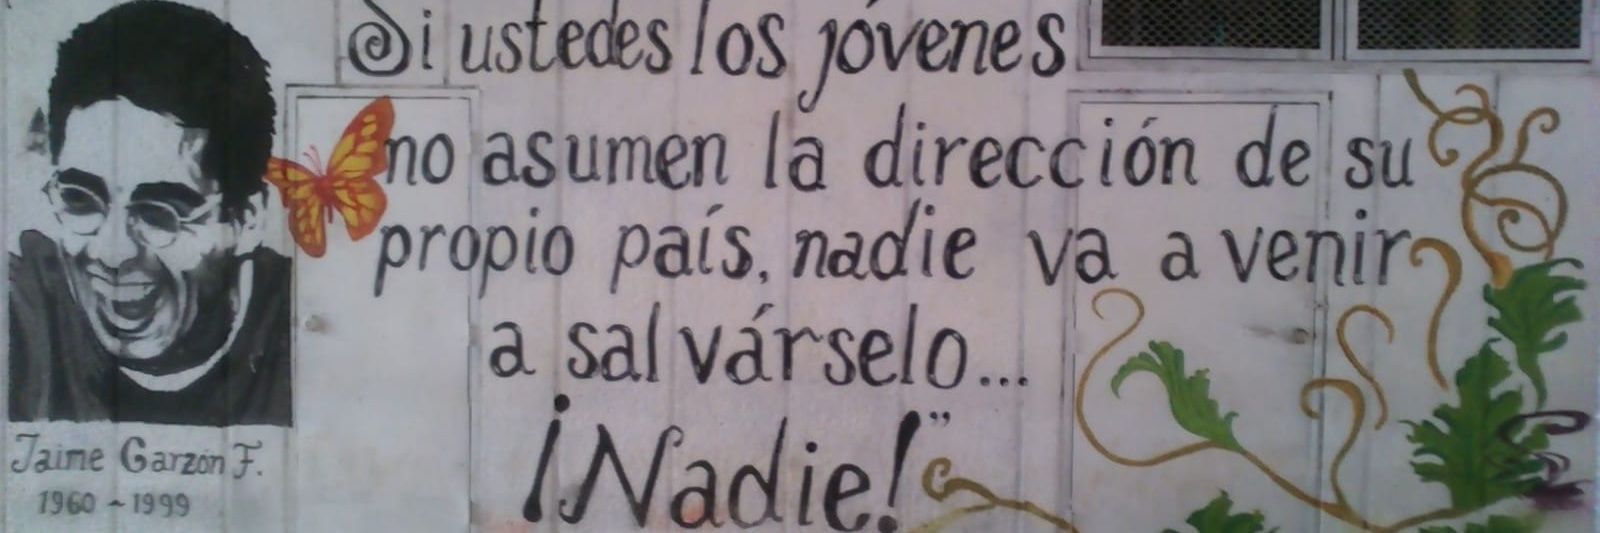 Si ustedes los jóvenes
no asumen la dirección de su
propio país, nadie va a venir
a salvárselo...
¡Nadie!”
Jaime Garzón F.
1960 ~ 1999